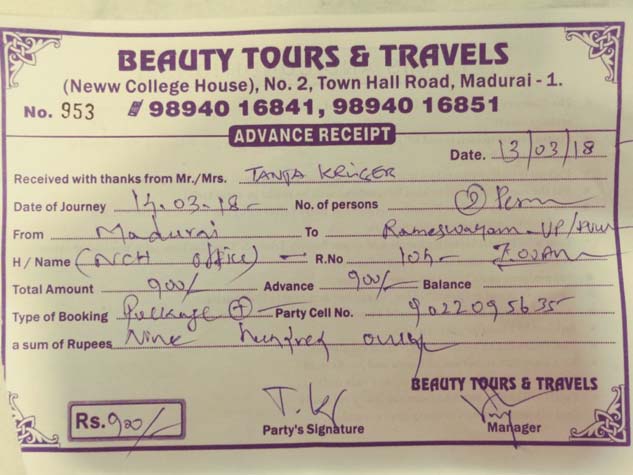 BEAUTY TOURS & TRAVELS
(Neww College House), No. 2, Town Hall Road, Madurai - 1.
No. 953 98940 16841, 98940 16851
ADVANCE RECEIPT
Date. 13/03/18
Received with thanks from Mr./Mrs. TANJA KRÜGER
Date of Journey 14.03.18- No. of persons Person
From Madurai To Rameswaram - UP/
H / Name (NCH office) - R.No 105- 7.00AM
Total Amount 900/ Advance 900/ Balance
Type of Booking Package Party Cell No. 9022095635
a sum of Rupees Nine hundred only
BEAUTY TOURS & TRAVELS
Rs. 900/ T.K
Party's Signature Manager